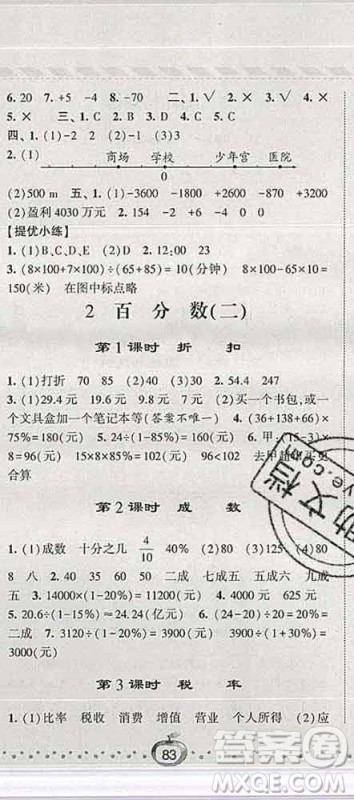 6. 20　7. +5　-4　8. -70　二、1. √　2. √　3. √　4. ×
5. ×　三、1. C　2. B　3. A　4. C
四、1. (1)-2　2　(2)-1　(3)4
2. (1)
商场　学校　少年宫　医院
0
(2)500 m　五、1. (1)-3600　-1800　+2600　+3200
(2)盈利4030万元　2. 154　-2　-12　-6　+4　+24　-8
【提优小练】
1. (1)B、C、D、E　2. 12:00　23
3. (8×100+7×100)÷(65+85)=10(分钟)　8×100-65×10=
150(米)　在图中标点略
2　百 分 数(二)
第1课时　折　扣
1. (1)打折　70　85　(2)40　20　2. 54.4　272
3. (1)29.4　19.6　29.4　9.8　(2)买一个书包,或一
个文具盒加一个笔记本等(答案不唯一)　4. (36+138+66)×
75%=180(元)　5. 24÷(1-80%)=120(元)　6. 甲:(15-3)×
8=96(元)　15×8×85%=102(元)　96<102　去甲
合算
第2课时　成　数
1. (1)成数　十分之几　4/10　40%　(2)80　(3)125　(4)80
8　八　20　2. 四成　二成五　七成　五成六　几成
五　3. 14000×(1-20%)=11200(元)　4. 4200×(1+10%)=4620(元)
5. 20.6÷(1-15%)≈24.24(亿元)　6. (30-24)÷30=20%=
二成　7. 3120÷(1-20%)=3900(元)　3900÷(1+30%)=
3000(元)
第3课时　税　率
1. (1)比率　税收　消费　增值　营业　个人所得　(2)应
83
答案圈
MXQE.COM